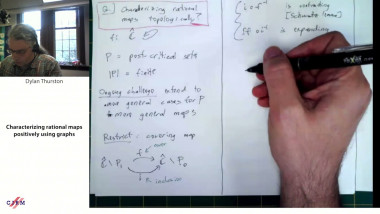 Dylan Thurston
Characterizing rational maps
positively using graphs
CIRM
Q. Characterizing rational
maps topologically?
f: Ĉ
P = post-critical sets
|P| = finite
Ongoing challenge: extend to
more general cases for P
+ more general maps
Restrict: covering map
f cover
Ĉ \ P₁ Ĉ \ P₀
i, inclusion
i = f⁻¹ is contracting
[Schwarz lemma]
is expanding